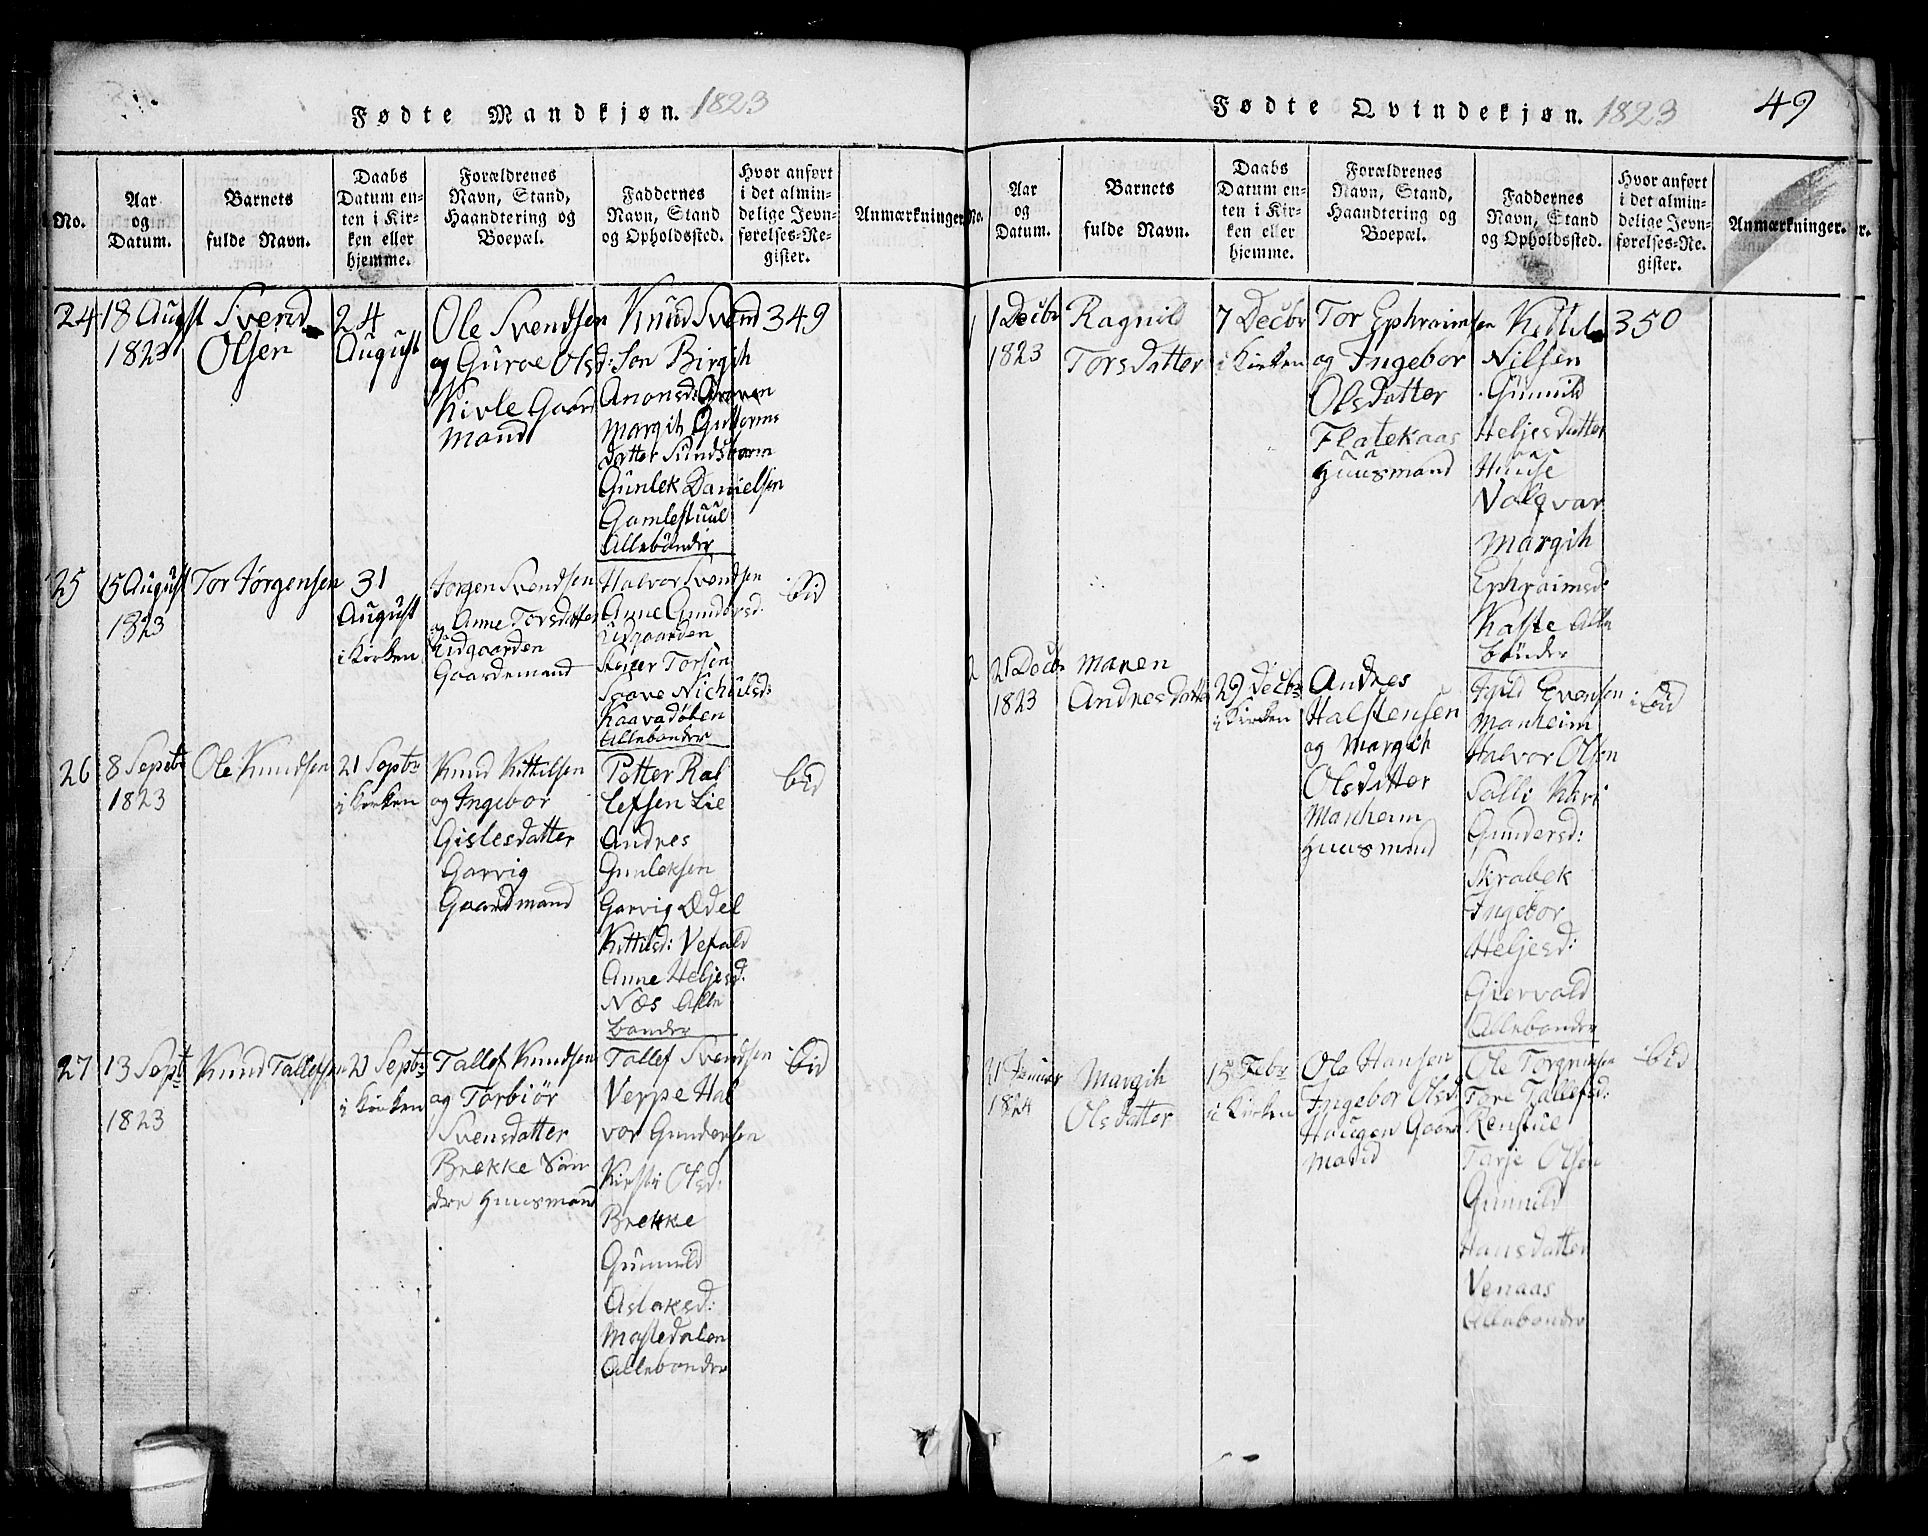 Fødte Mandkjøn. 1823
No.
Aar
og
Datum.
Barnets
fulde Navn.
Daabs
Datum en-
ten i Kir-
ken eller
hjemme.
Forældrenes
Navn, Stand,
Haandtering og
Boepæl.
Faddernes
Navn, Stand
og Opholdssted.
Hvor anført
i det almin-
delige Jevn-
førelses-Re-
gister.
Anmærkninger.
24
18 August
1823
Svend
Olsen
24
August
Ole Svendsen
og Guroe Olsd:
Kivle Gaard
mand
Knud Svend
Søn Birgith
Anonsd:
Margith Guttorms
datter Sundsbarm
Gunlek Danielsen
Gamlestuul
Allebønder
349
25
15 August
1823
Tor Jørgensen
31
August
i Kirken
Jørgen Svendsen
og Anne Torsdatter
Lidgaarden
Gaardemand
Halvor Svendsen
Anne Gundersd:
Lidgaarden
Torsen
Kaavadølen
Allebonder
ibid
26
8 Septbr
1823
Ole Knudsen
21 Septbr
i Kirken
Knud Kittilsen
og Ingebor
Gislesdatter
Garvig
Gaardmand
Petter Rol
lefsen Lie
Andres
Gunleksen
Garvig Edel
Kittilsd: Vefald
Anne Heljesd:
Næs Alle
bønder
ibid
27
13 Septbr
1823
Knud Tallefsen
21 Septbr
i Kirken
Tallef Knudsen
og Torbiør
Svensdatter
Brekke Søn
dre Huusmand
Tallef Svendsen
Verpe Hal
vor Gundersen
Kirsti Olsd:
Brekke
Gunnild
Aslaksd:
Mostedalen
Allebonder
ibid
Fødte Qvindekjøn. 1823
49
No.
Aar
og
Datum.
Barnets
fulde Navn.
Daabs
Datum en-
ten i Kir-
ken eller
hjemme.
Forældrenes
Navn, Stand,
Haandtering og
Boepæl.
Faddernes
Navn, Stand
og Opholdssted.
Hvor anført
i det almin-
delige Jevn-
førelses-Re-
gister.
Anmærkninger.
1
1 Decbr
1823
Ragnild
Torsdatter
7 Decbr
i Kirken
Tor Ephraimsen
og Ingebor
Olsdatter
Flatekaas
Huusmand
Kittel
Nilsen
Gunnild
Heljesdatter
Huuse
Valqvar
Margith
Ephraimsd:
Kaste Alle
bønder
350
2
25 Decbr
1823
Maren
Andresdatter
29 Decbr
i Kirken
Andres
Halstensen
og Margith
Olsdatter
Manheim
Huusmand
Evensen
Manheim
Halvor Olsen
Kari
Gundersd:
Skrabek
Ingebor
Heljesd:
Giervold
Allebonder
ibid
21 Januar
1824
Margith
Olsdatter
15 Febr
i Kirken
Ole Hansen
Ingebor Olsd:
Haugen Gaard
mand
Ole Torgrimsen
Tore Tallefsd:
Renstue
Tarje Olsen
Gunnild
Hansdatter
Venaas
Allebonder
ibid